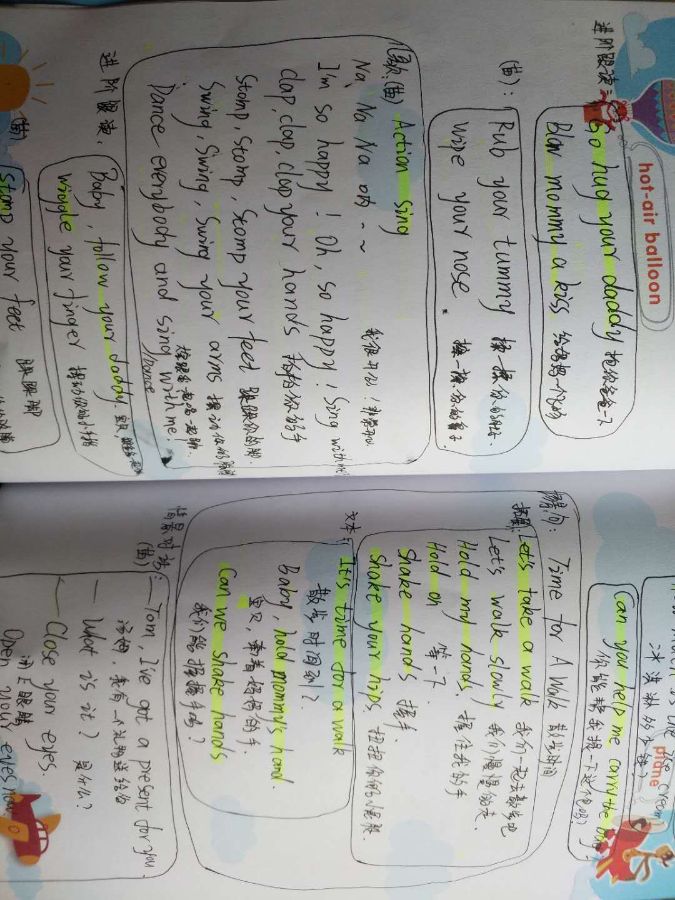 hot-air balloon
进阶跟读:
Go hug your daddy 抱你爸爸一下
Blow mommy a kiss 给妈妈一个飞吻
(曲): Rub your tummy 揉一揉你的肚子.
wipe your nose. 擦一擦你的鼻子
儿歌.(曲) Action sing
Na, Na Na
I'm so happy! Oh, so happy! Sing with me
clap, clap, clap your hands 拍拍你的手
Stomp, stomp, stomp your feet 跺跺你的脚.
Swing, Swing, Swing your arms
Dance everybody and sing with me!
/Dance
进阶跟读.
Baby, follow your daddy
wiggle your finger
(曲) stamp your feet 跺跺脚
plane
冰淇淋
Can you help me carry the bag
你能帮我提一下这个包吗?
Time for A Walk 散步时间
Let's take a walk 我们一起去散步吧
Let's walk slowly 我们慢慢的走.
Hold my hands, 握住我的手
Hold on 等一下.
Shake hands 握手.
Shake your hips 扭扭你的小屁股
It's time for a walk
散步时间到了
Baby, hold mommy's hand.
宝贝, 牵着妈妈的手.
Can we shake hands
我们能握握手吗?
情景对话:
(曲)
— Tom, I've got a present for you.
汤姆, 我有一个礼物送给你
— What is it? 是什么?
— Close your eyes.
闭上眼睛
Open your eyes now